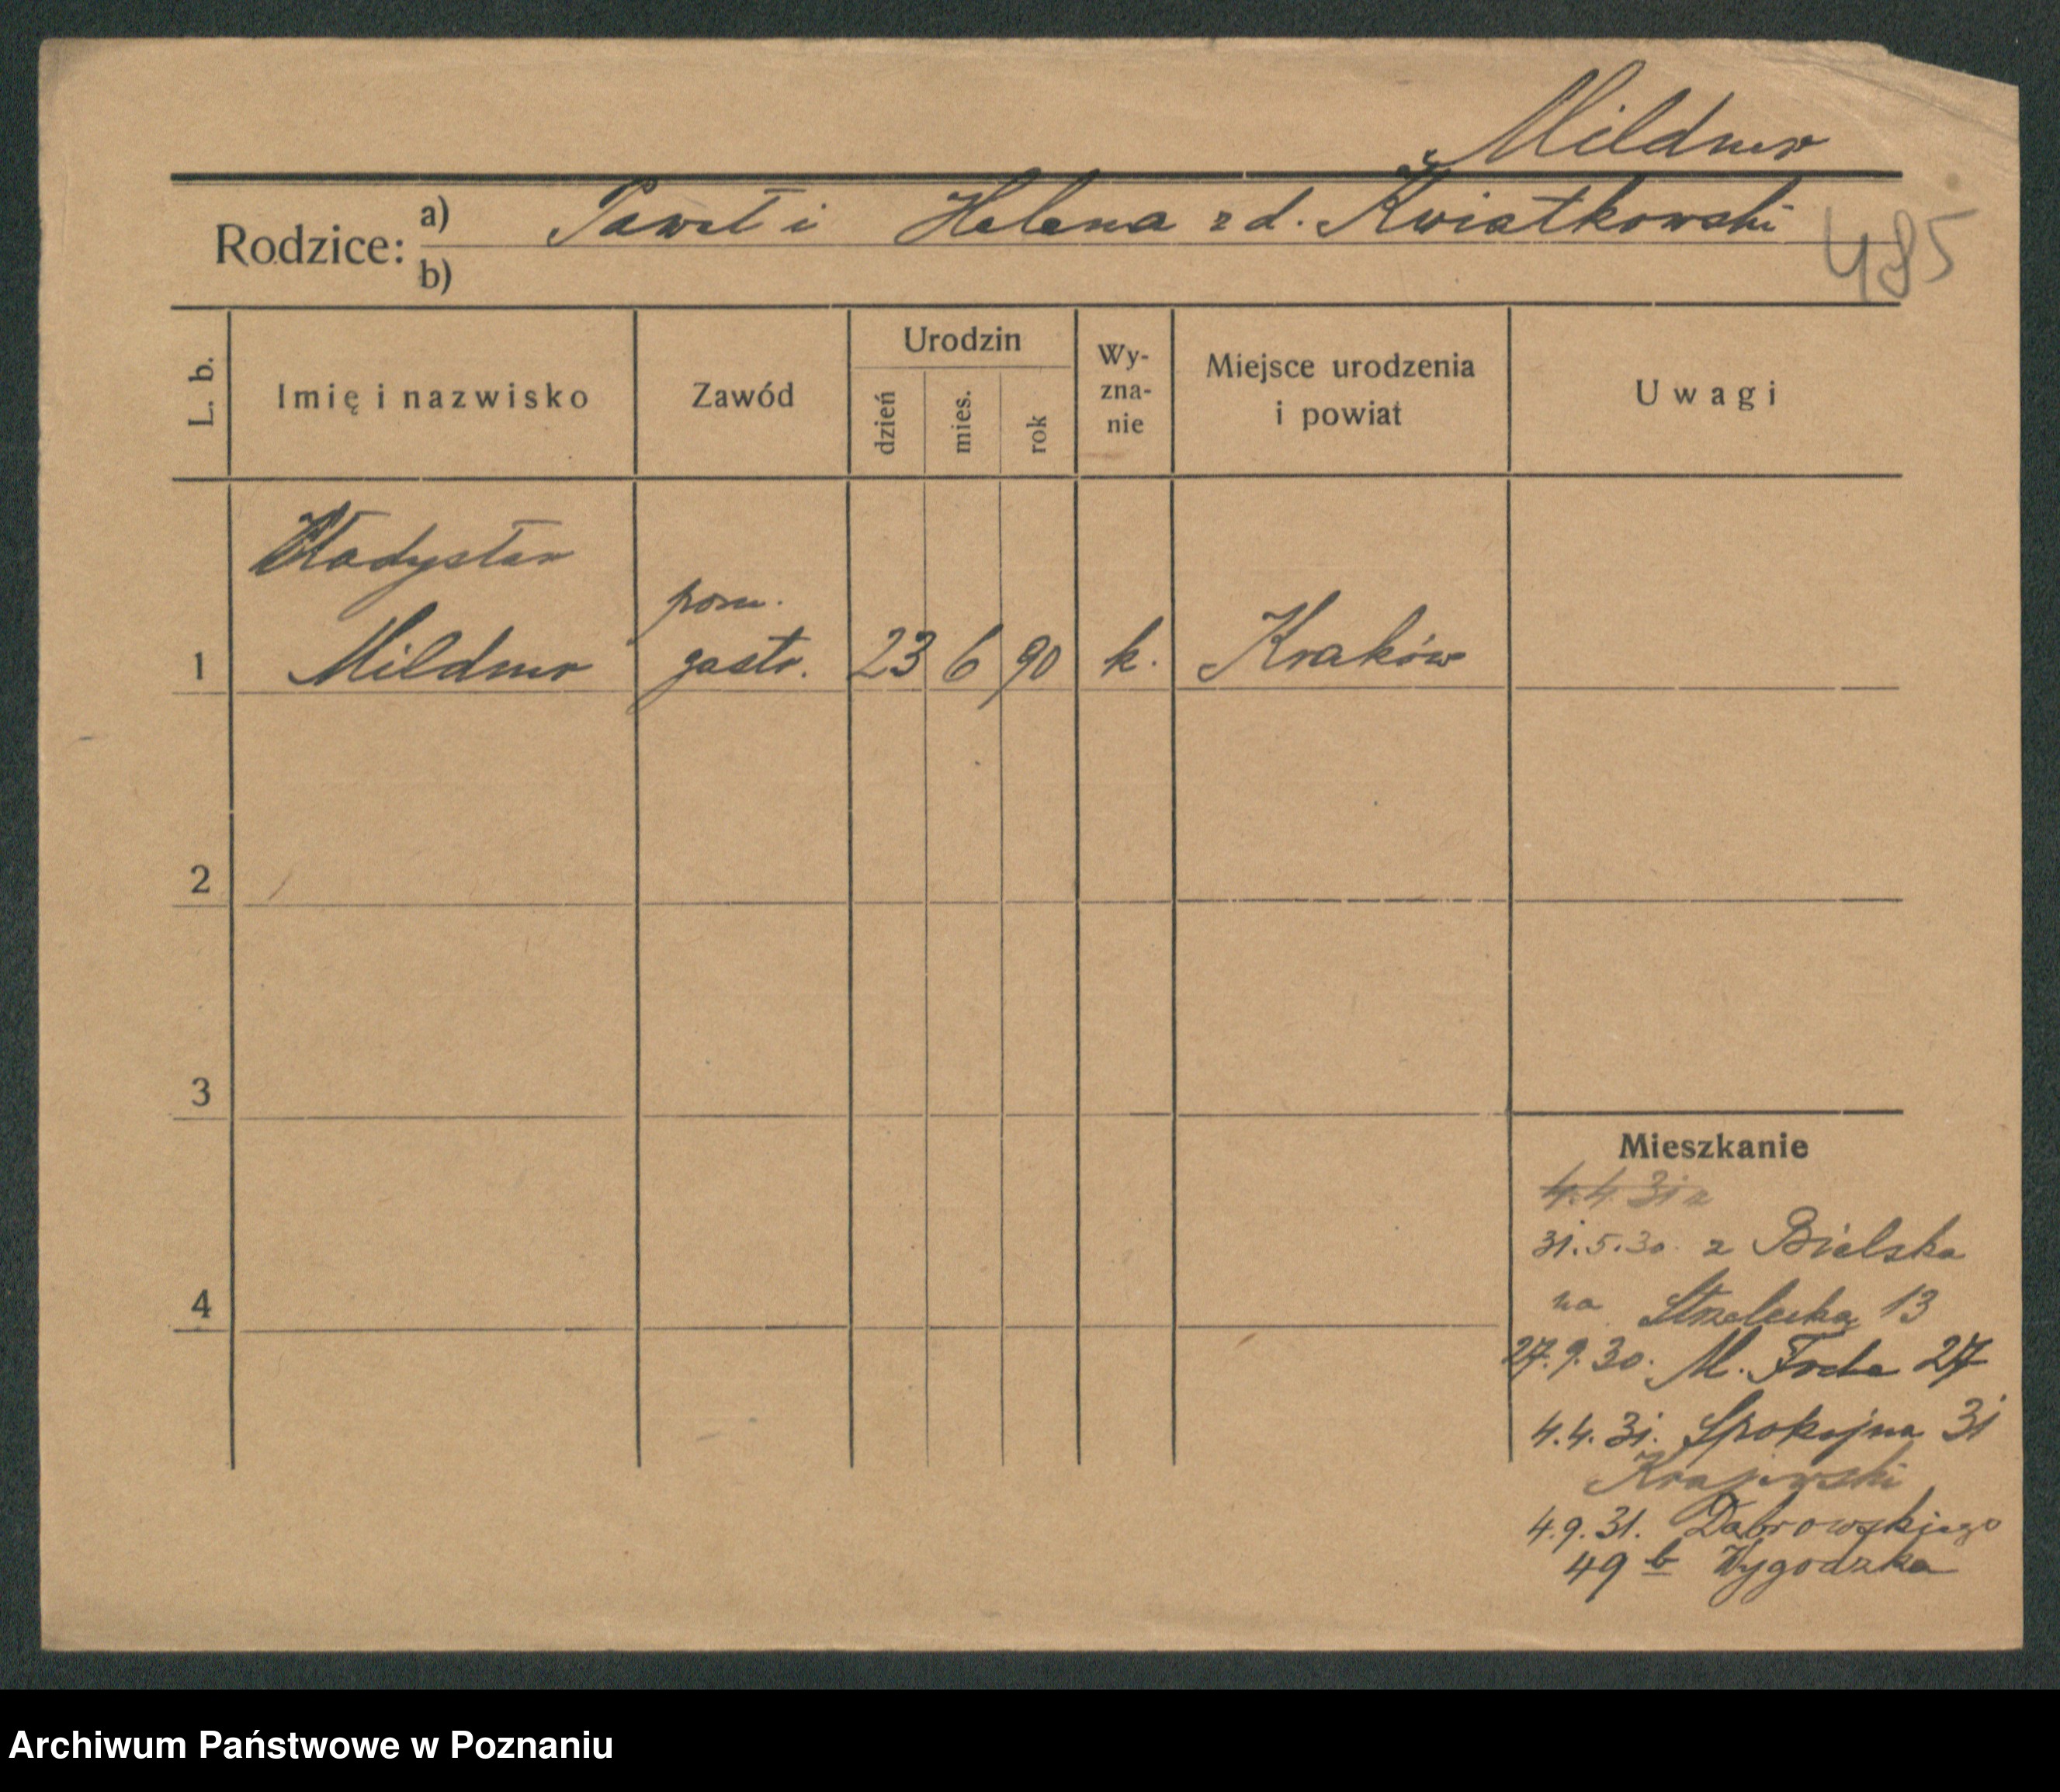 Mildner
Rodzice: a) Paweł i Helena z d. Kwiatkowski
b)
485
L. b.
Imię i nazwisko
Zawód
Urodzin
dzień
mies.
rok
Wy-
zna-
nie
Miejsce urodzenia
i powiat
Uwagi
Władysław
pom.
1 Mildner gastr. 23 6 90 k. Kraków
2
3
4
Mieszkanie
4.4.31 z
31.5.30. z Bielska
na Strzelecką 13
27.9.30. M. Focha 27
4.4.31. Spokojna 31
Krajewski
4.9.31. Dąbrowskiego
49 b Wygodzka
Archiwum Państwowe w Poznaniu